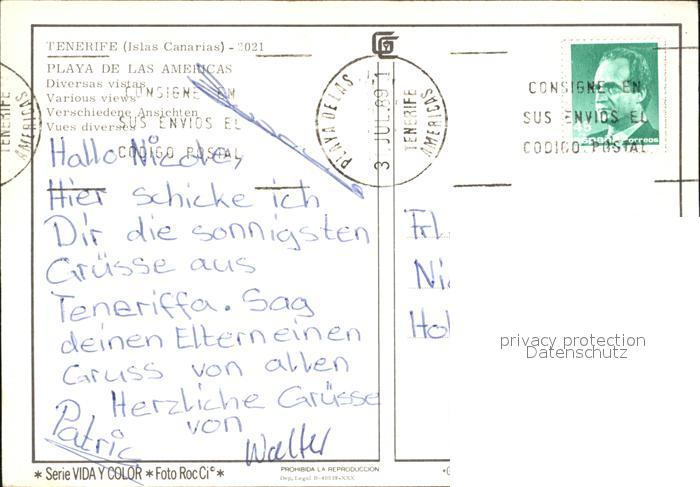 TENERIFE (Islas Canarias) - 2021
PLAYA DE LAS AMERICAS
Diversas vistas
Various views
Verschiedene Ansichten
Vues diverses
CONSIGNE EN
SUS ENVIOS EL
CODIGO POSTAL
TENERIFE
AMERICAS
PLAYA DE LAS
AMERICAS
TENERIFE
3 JUL. 89
CONSIGNE EN
SUS ENVIOS EL
CODIGO POSTAL
CORREOS
Hallo Nicole,
Hier schicke ich
Dir die sonnigsten
Grüsse aus
Teneriffa. Sag
deinen Eltern einen
Gruss von allen
Herzliche Grüsse
von
Patric
Walter
Frl.
Ni
Hol
privacy protection
Datenschutz
* Serie VIDA Y COLOR * Foto Roc Cíª *
PROHIBIDA LA REPRODUCCION